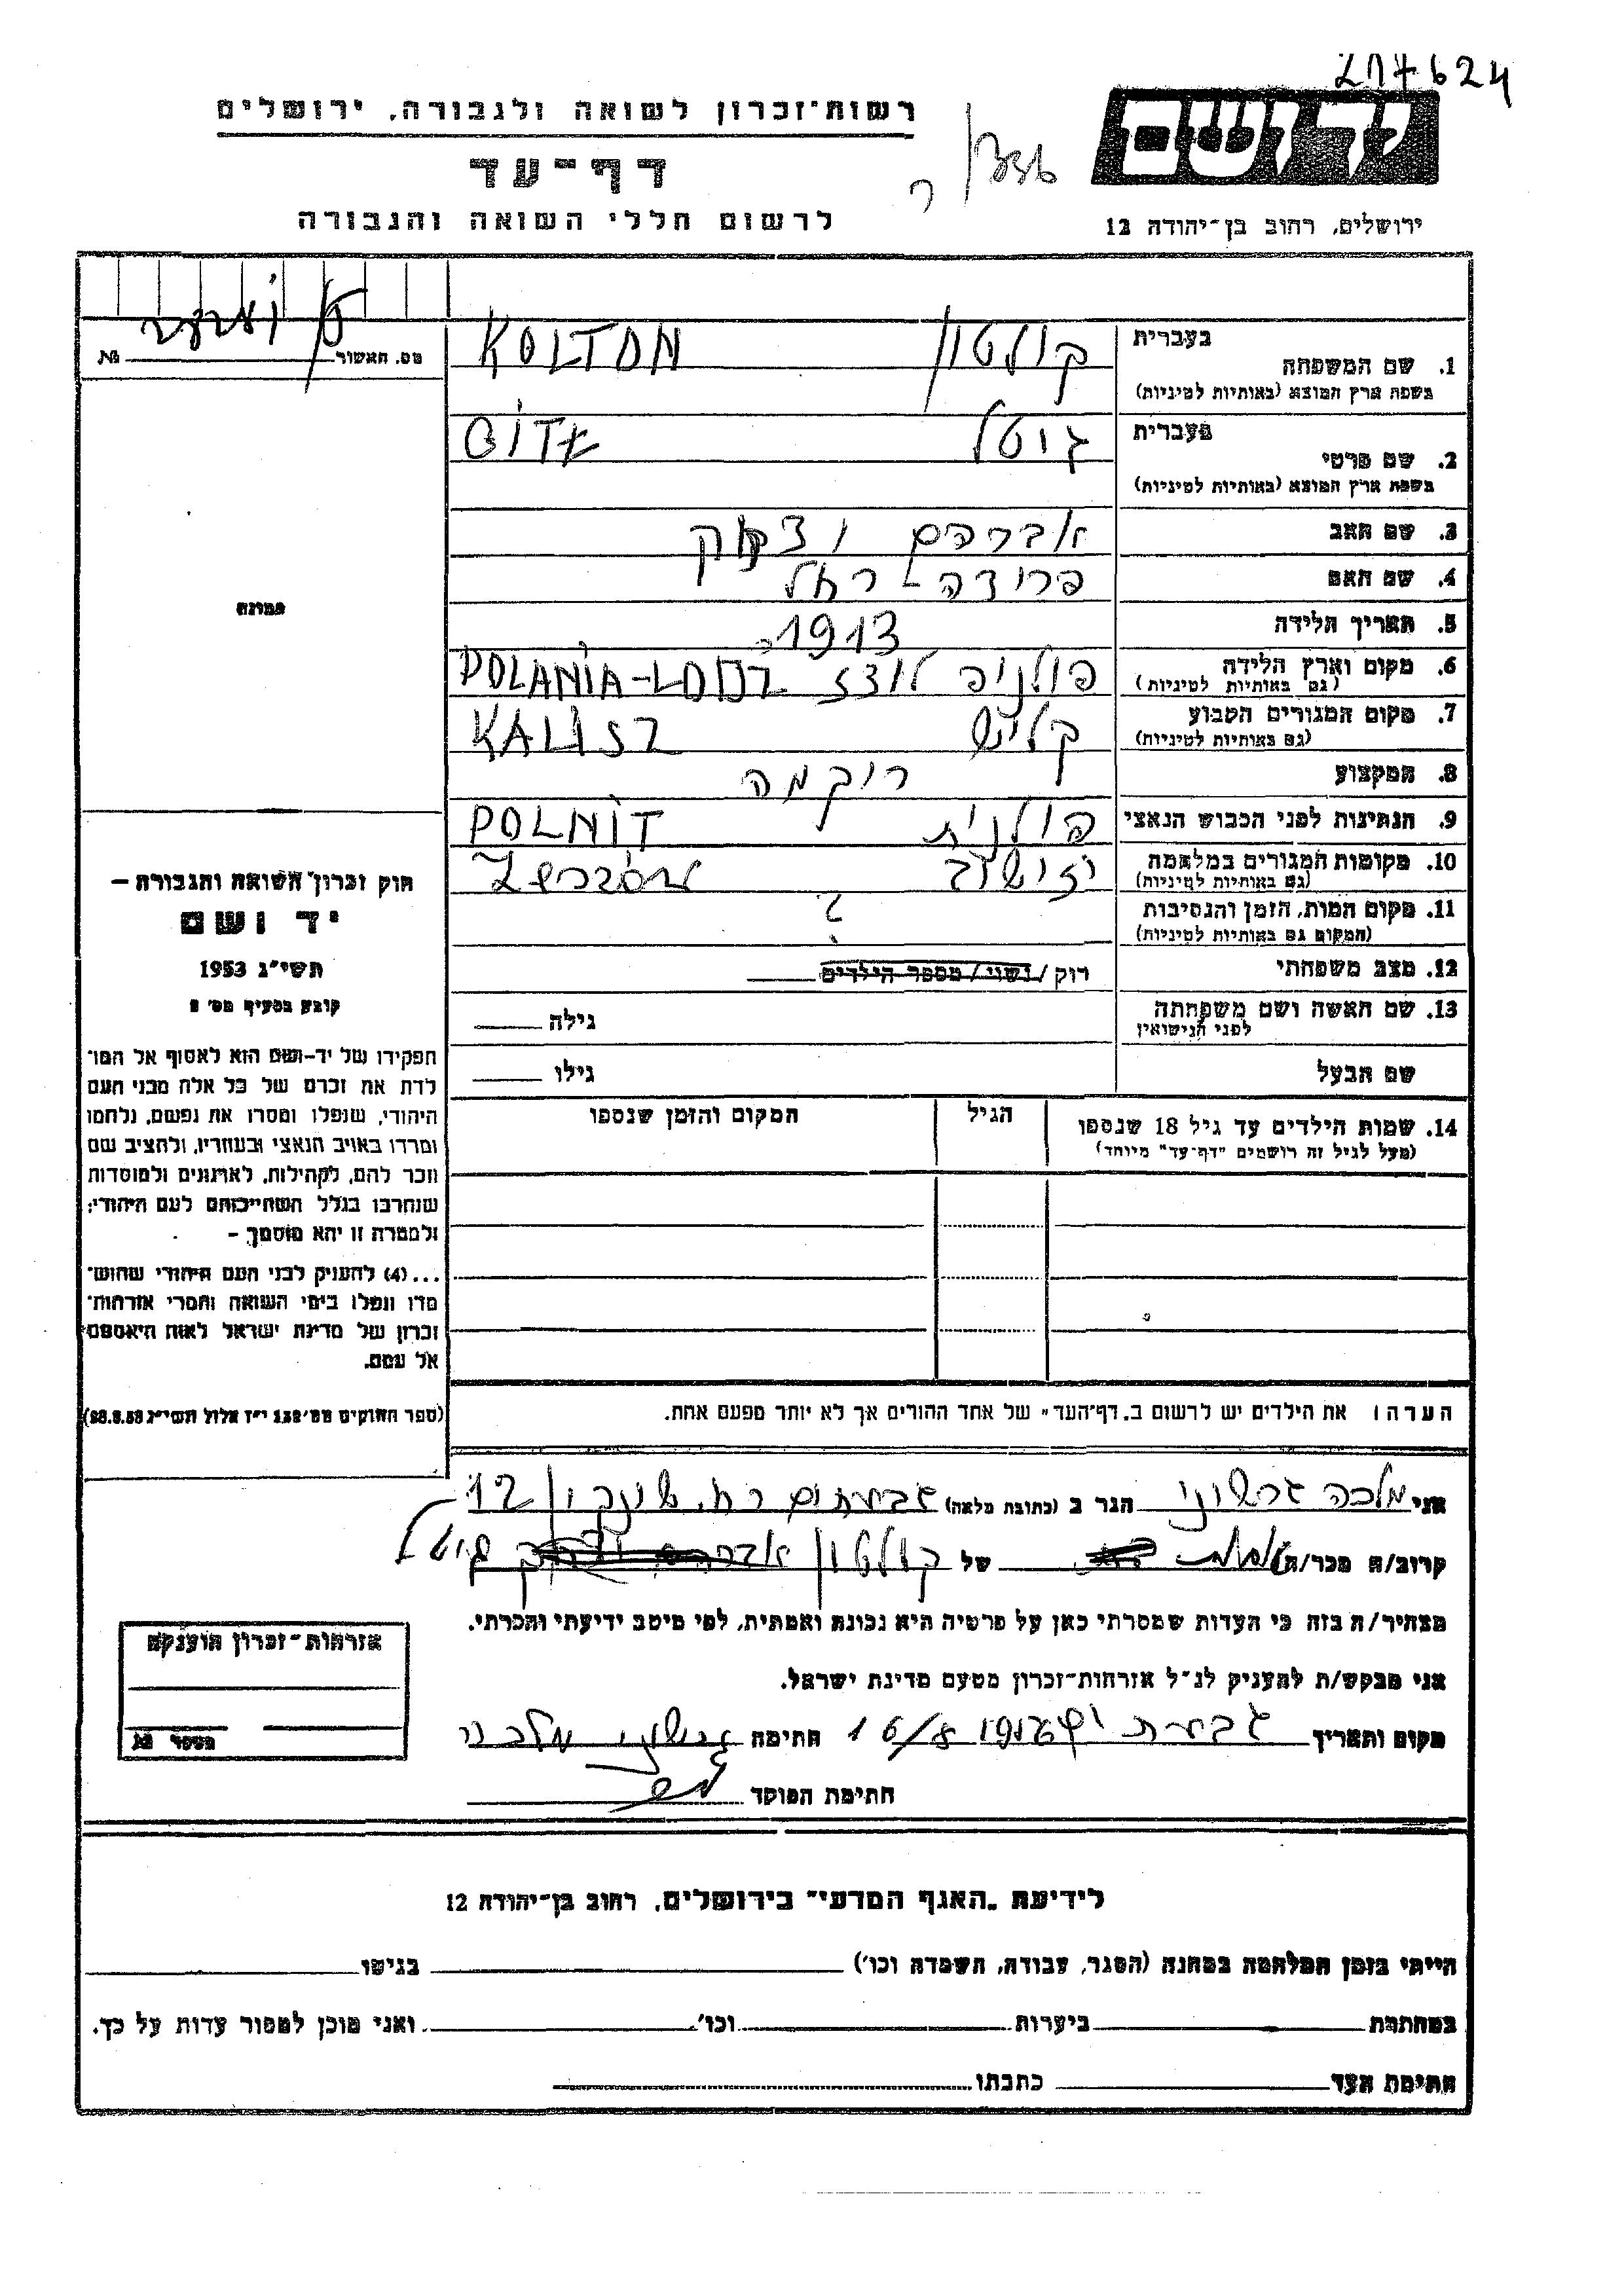 217624
רשות־זכרון לשואה ולגבורה, ירושלים
דף־עד
לרשום חללי השואה והגבורה
יד ושם
ירושלים, רחוב בן־יהודה 12
מס. האשור № 
1. שם המשפחה בעברית קולטון KOLTON
בשפת ארץ המוצא (באותיות לטיניות)
2. שם פרטי בעברית גיטל
בשפת ארץ המוצא (באותיות לטיניות)
3. שם האב אברהם יצחק
4. שם האם פרודה - רחל
5. תאריך הלידה 1913
6. מקום וארץ הלידה פולניה לודז POLANIA-LODZ
(גם באותיות לטיניות)
7. מקום המגורים הקבוע קליש KALISZ
(גם באותיות לטיניות)
8. המקצוע רוקמה
9. הנתינות לפני הכבוש הנאצי פולנית POLNIT
10. מקומות המגורים במלחמה
(גם באותיות לטיניות)
11. מקום המות, הזמן והנסיבות ?
(המקום גם באותיות לטיניות)
12. מצב משפחתי רווק / נשוי / מספר הילדים
13. שם האשה ושם משפחתה גילה
לפני הנישואין
שם הבעל גילו
14. שמות הילדים עד גיל 18 שנספו הגיל המקום והזמן שנספו
(מעל לגיל זה רושמים "דף־עד" מיוחד)
הערה: את הילדים יש לרשום ב„דף־העד" של אחד ההורים אך לא יותר מפעם אחת.
תמונה
חוק זכרון השואה והגבורה —
יד ושם
תשי"ג 1953
קובע בסעיף מס' 2
תפקידו של יד־ושם הוא לאסוף אל המו־
לדת את זכרם של כל אלה מבני העם
היהודי, שנפלו ומסרו את נפשם, נלחמו
ומרדו באויב הנאצי ובעוזריו, ולהציב שם
וזכר להם, לקהילות, לארגונים ולמוסדות
שנחרבו בגלל השתייכותם לעם היהודי;
ולמטרה זו יהא מוסמך —
...(4) להעניק לבני העם היהודי שהוש־
מדו ונפלו בימי השואה והמרי אזרחות־
זכרון של מדינת ישראל לאות היאספם
אל עמם.
(ספר החוקים מס' 132 י"ז אלול תשי"ג 28.8.53)
אני מלכה גרשוני הגר ב (כתובת מלאה) גבעתים רח. שנקין 12
קרוב/ה מכר/ה של קולטון גיטל
מצהיר/ה בזה כי העדות שמסרתי כאן על פרטיה היא נכונה ואמתית, לפי מיטב ידיעתי והכרתי.
אני מבקש/ת להעניק לנ"ל אזרחות־זכרון מטעם מדינת ישראל.
מקום ותאריך חתימה גרשוני מלכה
חתימת הפוקד
אזרחות־זכרון הוענקה
מספר №
לידיעת „האגף המדעי" בירושלים, רחוב בן־יהודה 12
הייתי בזמן המלחמה במחנה (הסגר, עבודה, השמדה וכו') בגיטו
במחתרת ביערות וכו' ואני מוכן למסור עדות על כך.
חתימת העד כתבתו